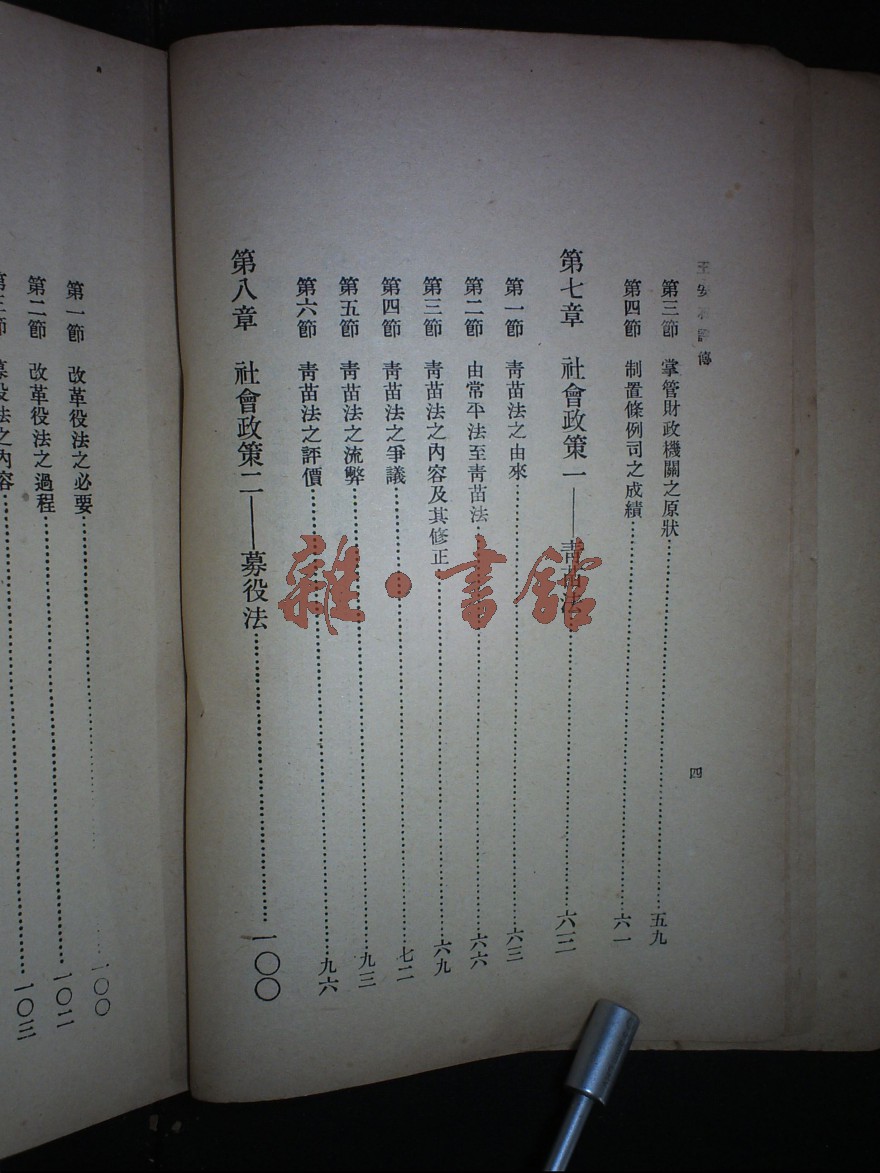 王安石評傳
四
第三節 掌管財政機關之原狀……五九
第四節 制置條例司之成績……六一
第七章 社會政策一——靑苗法……六二
第一節 靑苗法之由來……六三
第二節 由常平法至靑苗法……六六
第三節 靑苗法之內容及其修正……六九
第四節 靑苗法之爭議……七二
第五節 靑苗法之流弊……九三
第六節 靑苗法之評價……九六
第八章 社會政策二——募役法……一〇〇
第一節 改革役法之必要……一〇〇
第二節 改革役法之過程……一〇二
第三節 募役法之內容……一〇三
雜·書館